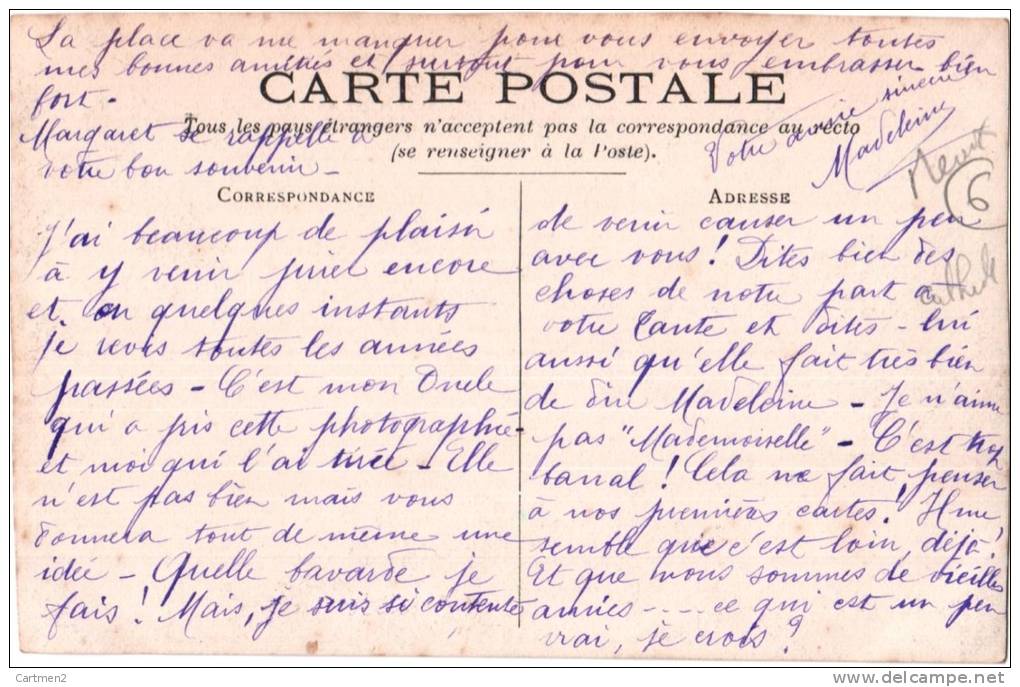 La place va me manquer pour vous envoyer toutes
mes bonnes amitiés et surtout pour vous embrasser bien
fort.
CARTE POSTALE
Margaret se rappelle à
votre bon souvenir -
Tous les pays étrangers n'acceptent pas la correspondance au recto
(se renseigner à la Poste).
Votre amie sincère
Madeleine
6
CORRESPONDANCE
J'ai beaucoup de plaisir
à y venir prier encore
et, en quelques instants
je revis toutes les années
passées - C'est mon Oncle
qui a pis cette photographie
et moi qui l'ai tirée - Elle
n'est pas bien mais vous
donnera tout de même une
idée - Quelle bavarde je
fais ! Mais, je suis si contente
ADRESSE
de venir causer un peu
avec vous ! Dites bien des
choses de notre part à
votre Tante et dites-lui
aussi qu'elle fait très bien
de dire Madeleine - Je n'aime
pas "Mademoiselle" - C'est trop
banal ! Cela me fait penser
à nos premières cartes ! Il me
semble que c'est loin, déjà !
Et que nous sommes de vieilles
amies .... ce qui est un peu
vrai, je crois ?
Cartmen2
delcampe.net